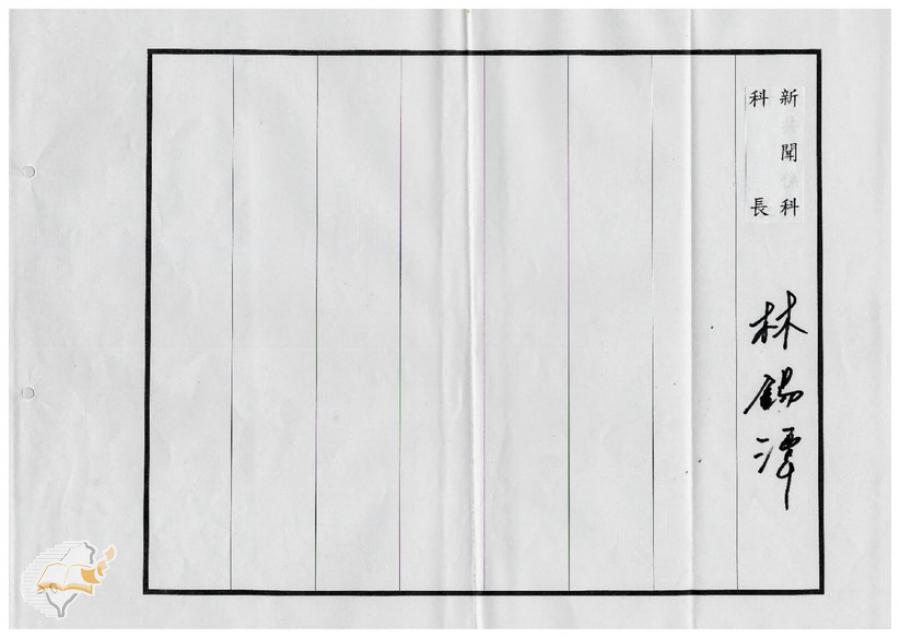 新聞科
科長
林錫潭